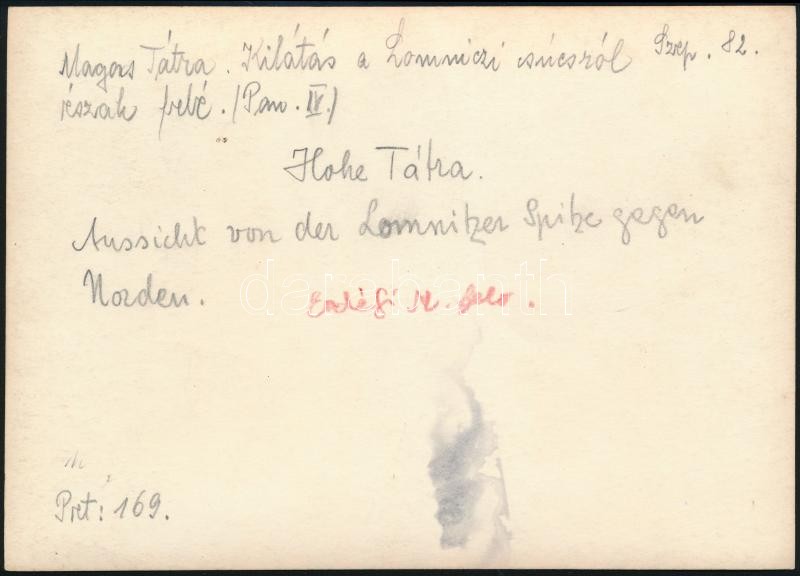 Magas Tátra. Kilátás a Lomniczi csúcsról Szep. 82.
észak felé. (Pan. IV.)
Hohe Tátra.
Aussicht von der Lomnitzer Spitze gegen
Norden.
darabanth
Erdélyi M. felv.
Pret: 169.